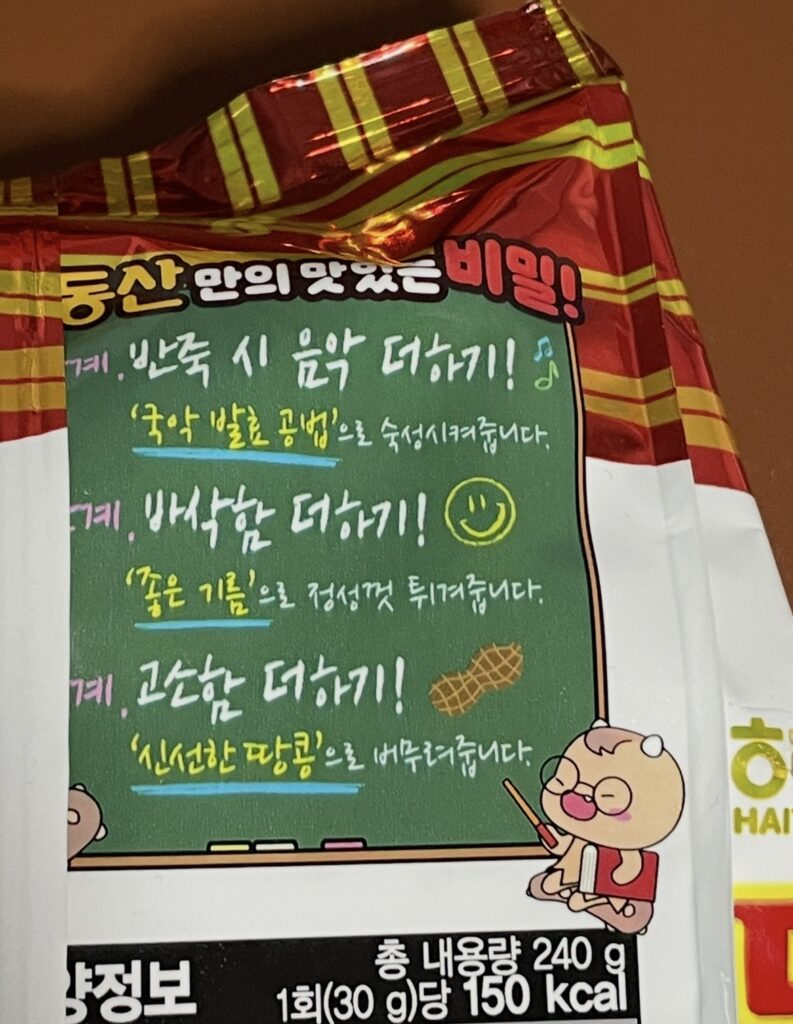 동산만의 맛있는 비밀!
계. 반죽 시 음악 더하기!
'국악 발효 공법'으로 숙성시켜줍니다.
계. 바삭함 더하기!
'좋은 기름'으로 정성껏 튀겨줍니다.
계. 고소함 더하기!
'신선한 땅콩'으로 버무려줍니다.
양정보
총 내용량 240 g
1회(30 g)당 150 kcal
HAI